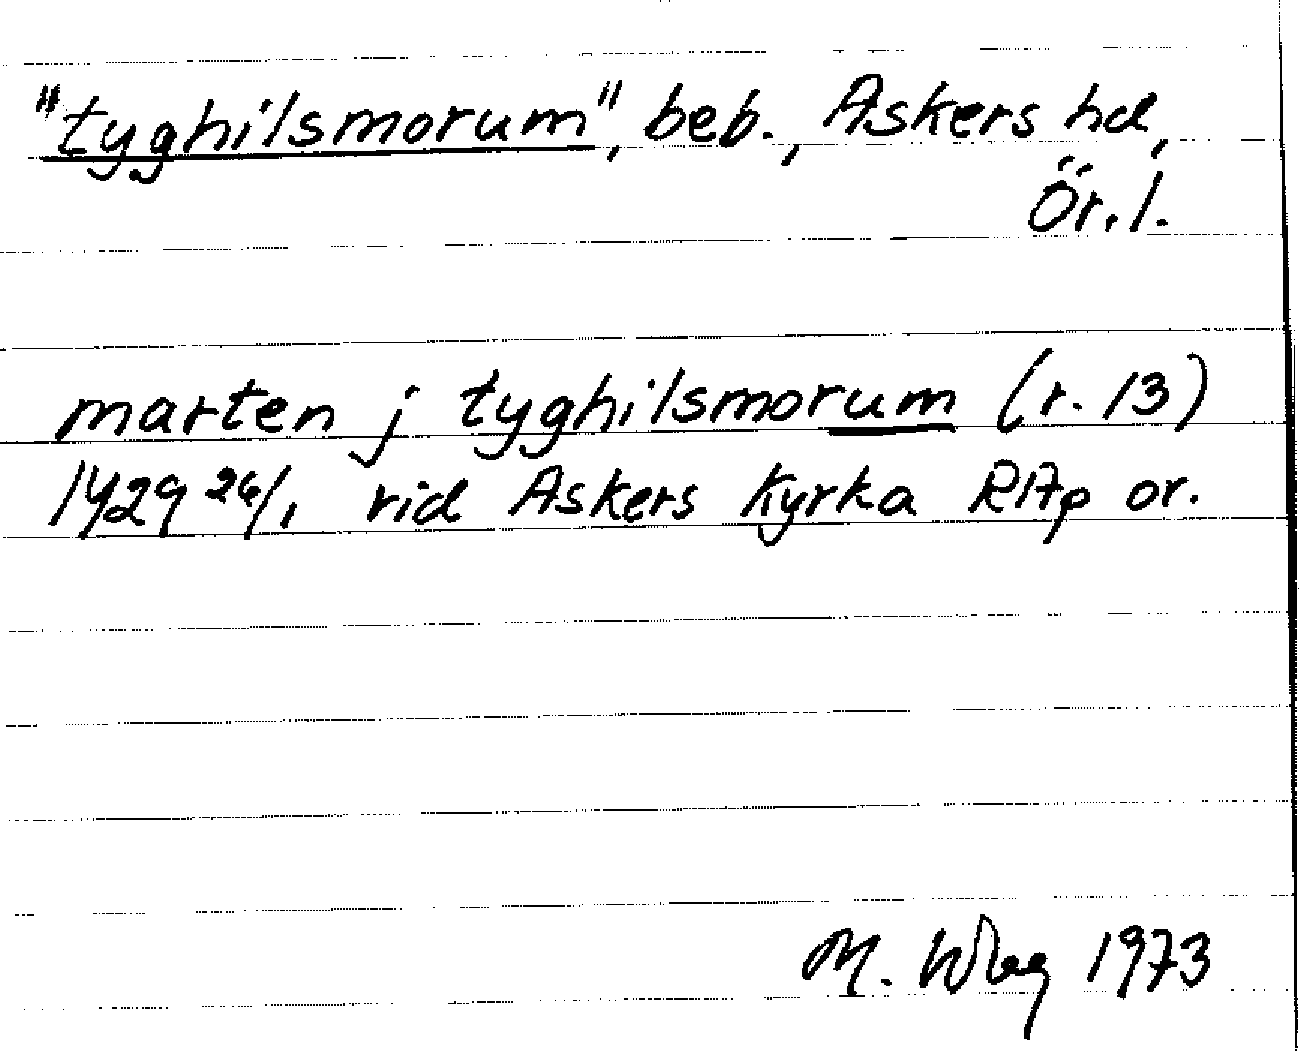 "tyghilsmorum", beb., Askers hd,
Ör. l.
marten j tyghilsmorum (r. 13)
1429 26/1 vid Askers kyrka RAp or.
M. Wbg 1973